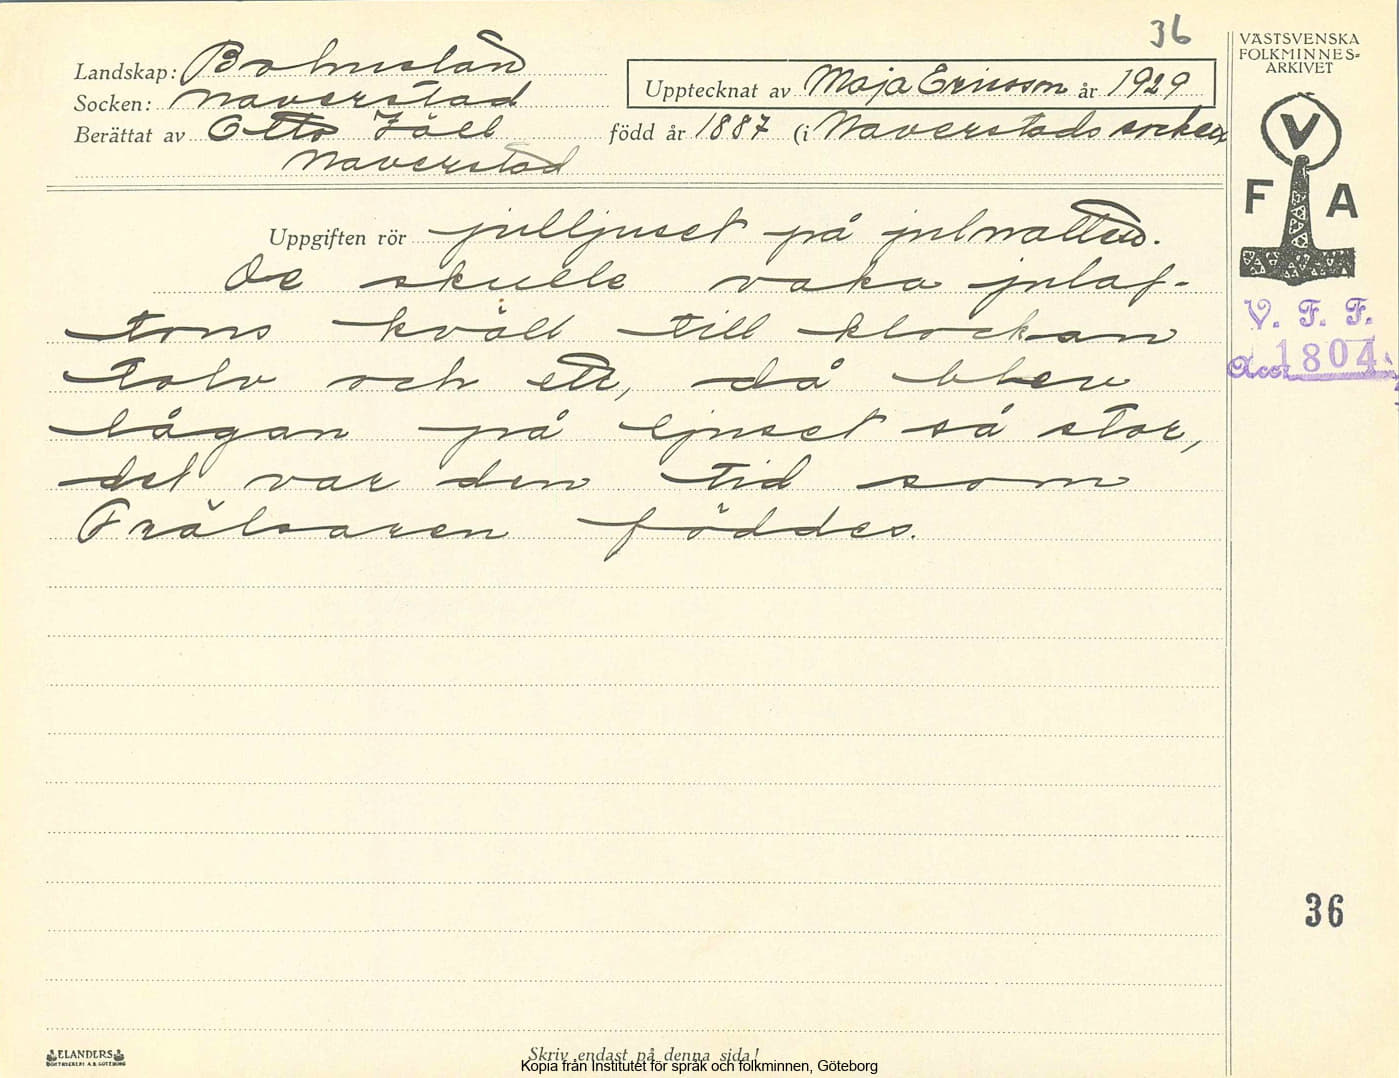 36
VÄSTSVENSKA
FOLKMINNES=
ARKIVET
Landskap: Bohuslän
Upptecknat av Maja Ericsson år 1929
Socken: Naverstad
Berättat av Otto Fäll född år 1887 (i Naverstads socken
Naverstad
V
F A
Uppgiften rör julljuset på julnatten.
De skulle vaka julaf-
tons kväll till klockan
tolv och ett, då blev
lågan på ljuset så stor,
det var den tid som
Frälsaren föddes.
V. F. F.
Acc. 1804
36
ELANDERS
BOKTRYCKERI A.B. GÖTEBORG
Skriv endast på denna sida!
Kopia från Institutet för språk och folkminnen, Göteborg